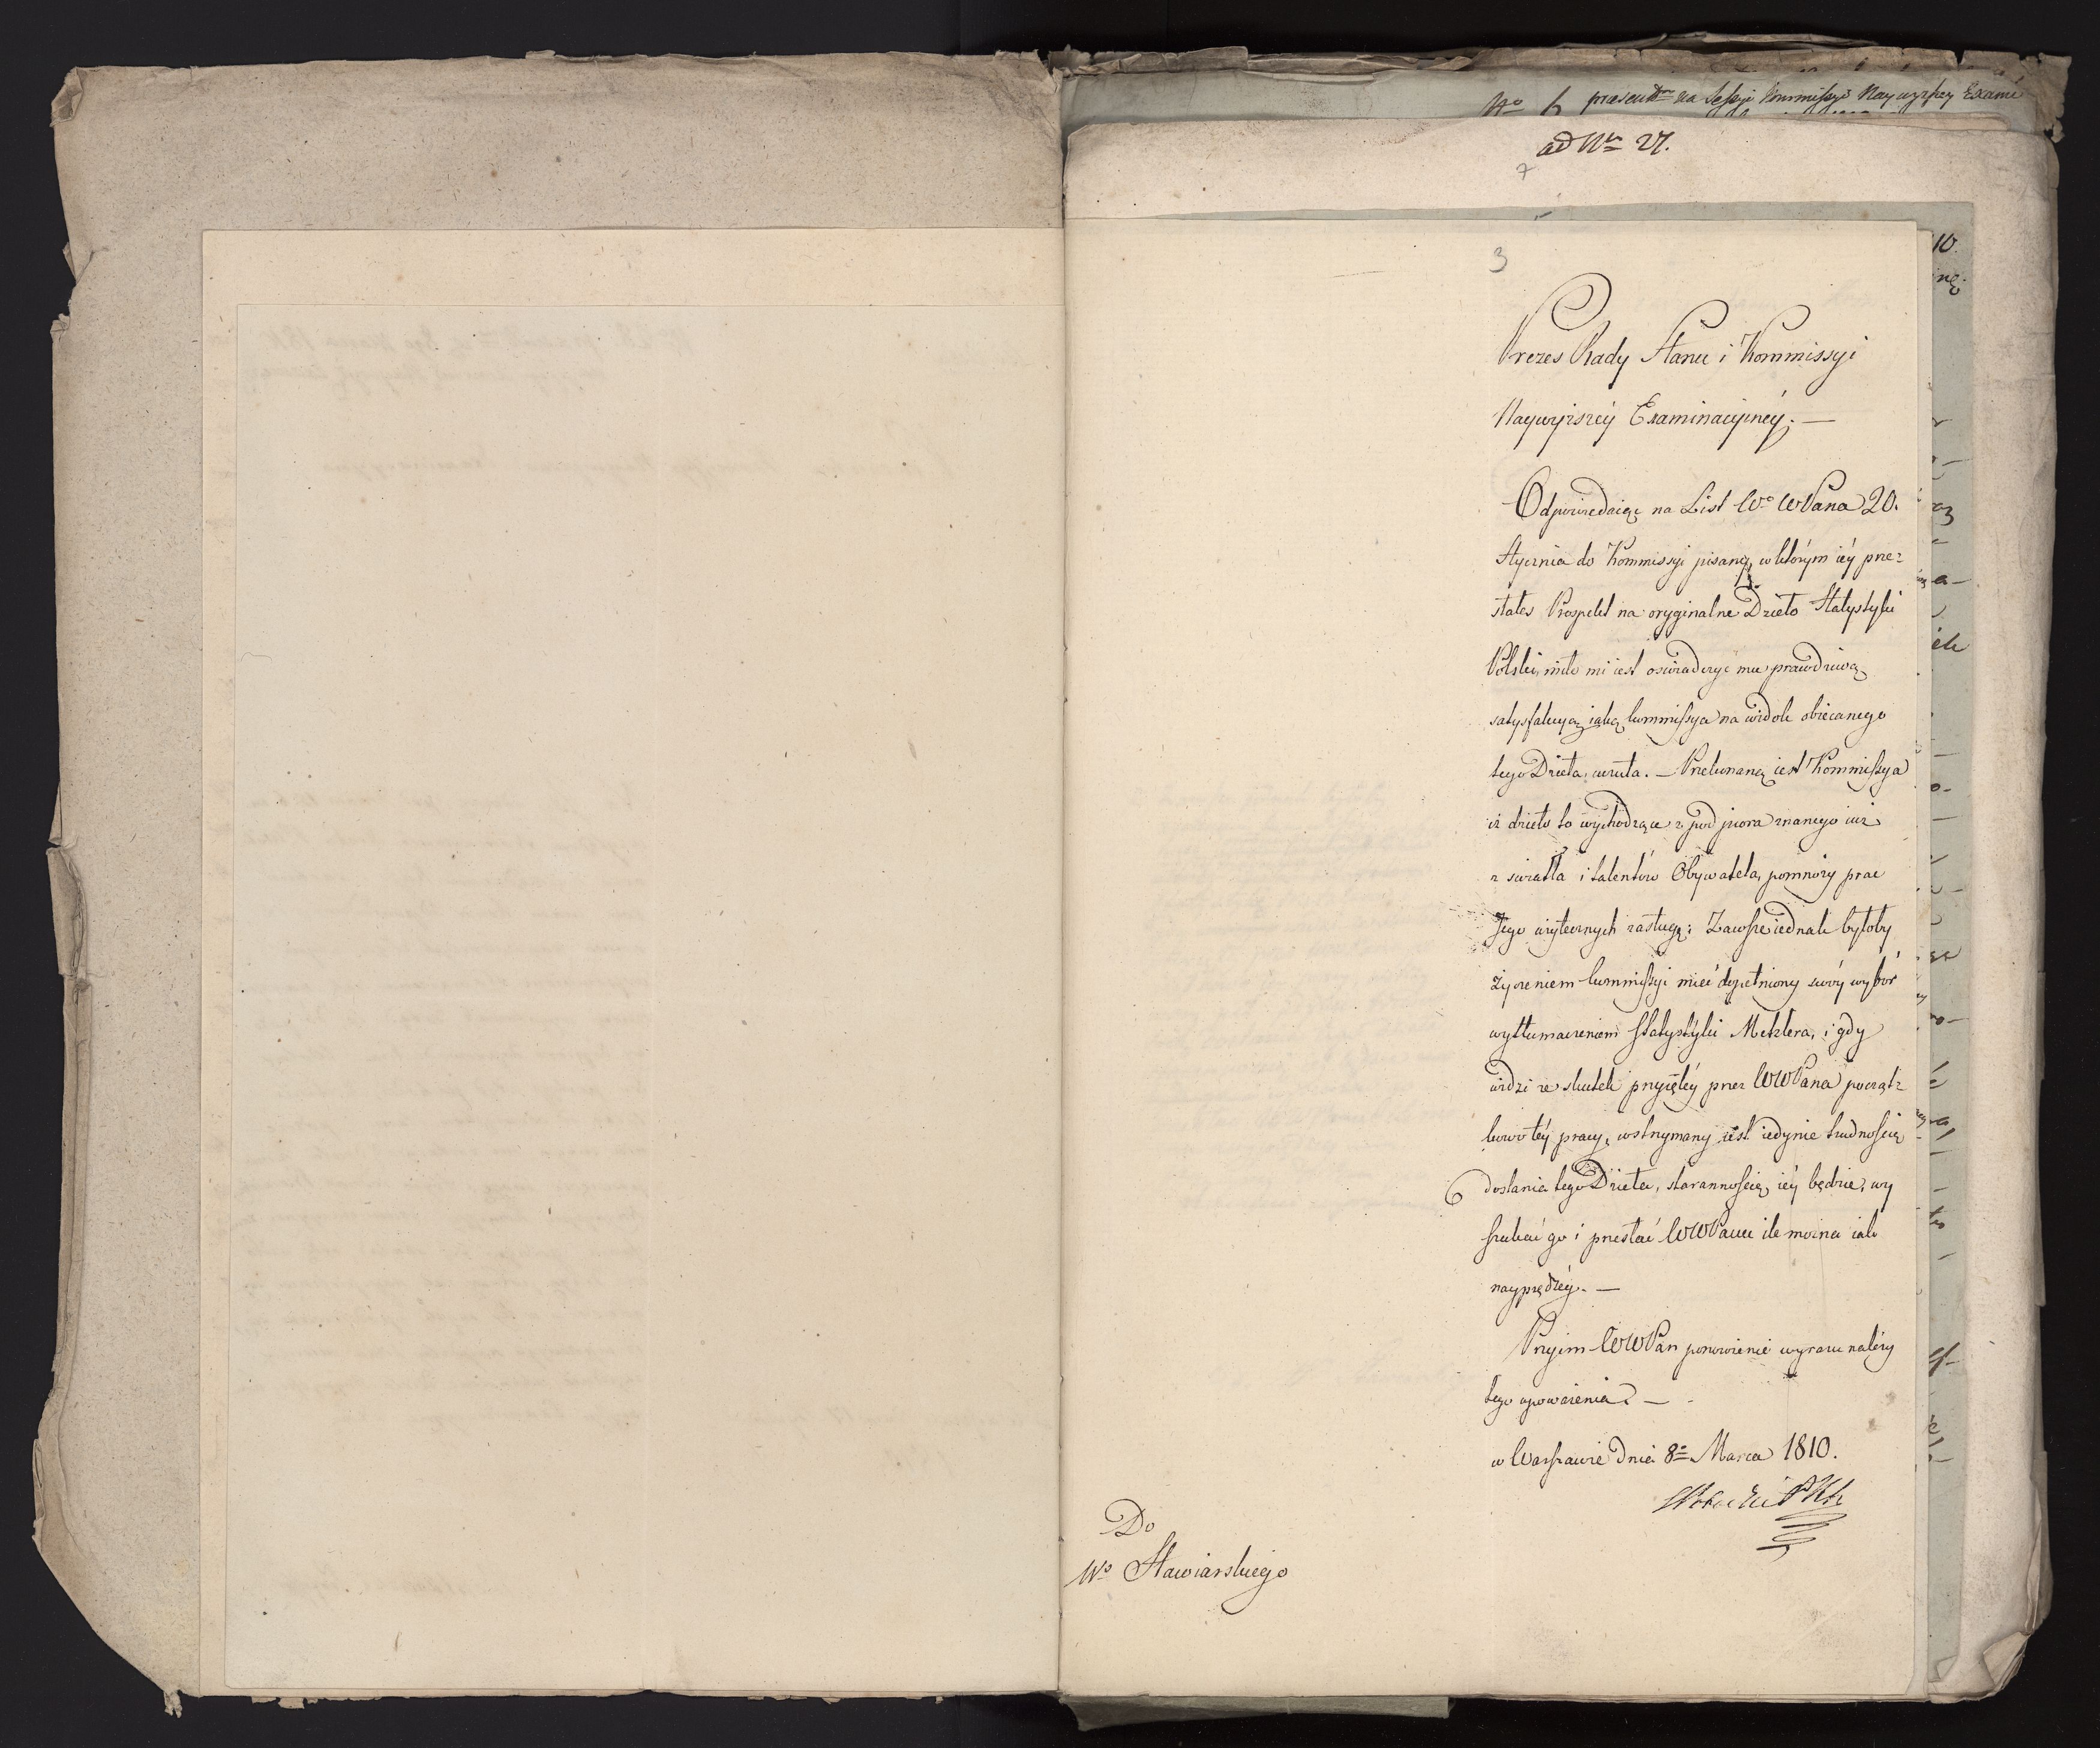 No 6 praesentm na Sessyi Kommissyi Naywyszey Exami
ad Nr 27.
7
3
Prezes Rady Stanu i Kommissyi
Naywyższéy Examinacyinéy. —
Odpowiedaiąc na List Wo WPana 20.
Stycznia do Kommissyi pisany, w którym iéy prze=
słałeś Prospekt na oryginalne Dzieło Statystyki
Polski, miło mi iest oświadczyć mu prawdziwą
satysfakcyą, iaką kommissya na widok obiecanego
tego Dzieła, uczuła. — Przekonaną iest Kommissya
iż dzieło to wychodzące z pod piora znanego iuż
z swiatła i talentów Obywatela, pomnoży prac
Jego użytecznych zasługę: Zawsze iednak byłoby
życzeniem kommissyi mieć dopełniony swóy wybór
wytłumaczeniem Statystyki Meklera, i gdy
widzi że skutek przyiętéy przez WWPana począt=
kowo téy pracy, wstrzymany iest iedynie trudnością
dostania tego Dzieła, starannością iéy będzie, wy
szukać go i przesłać WWPanu ile można iak
nayprędzéy. —
Przyim WWPan ponowienie wyrazu należy
tego upoważenia. —
w Warszawie dnia 8o Marca 1810.
Do
Wo Stawiarskiego